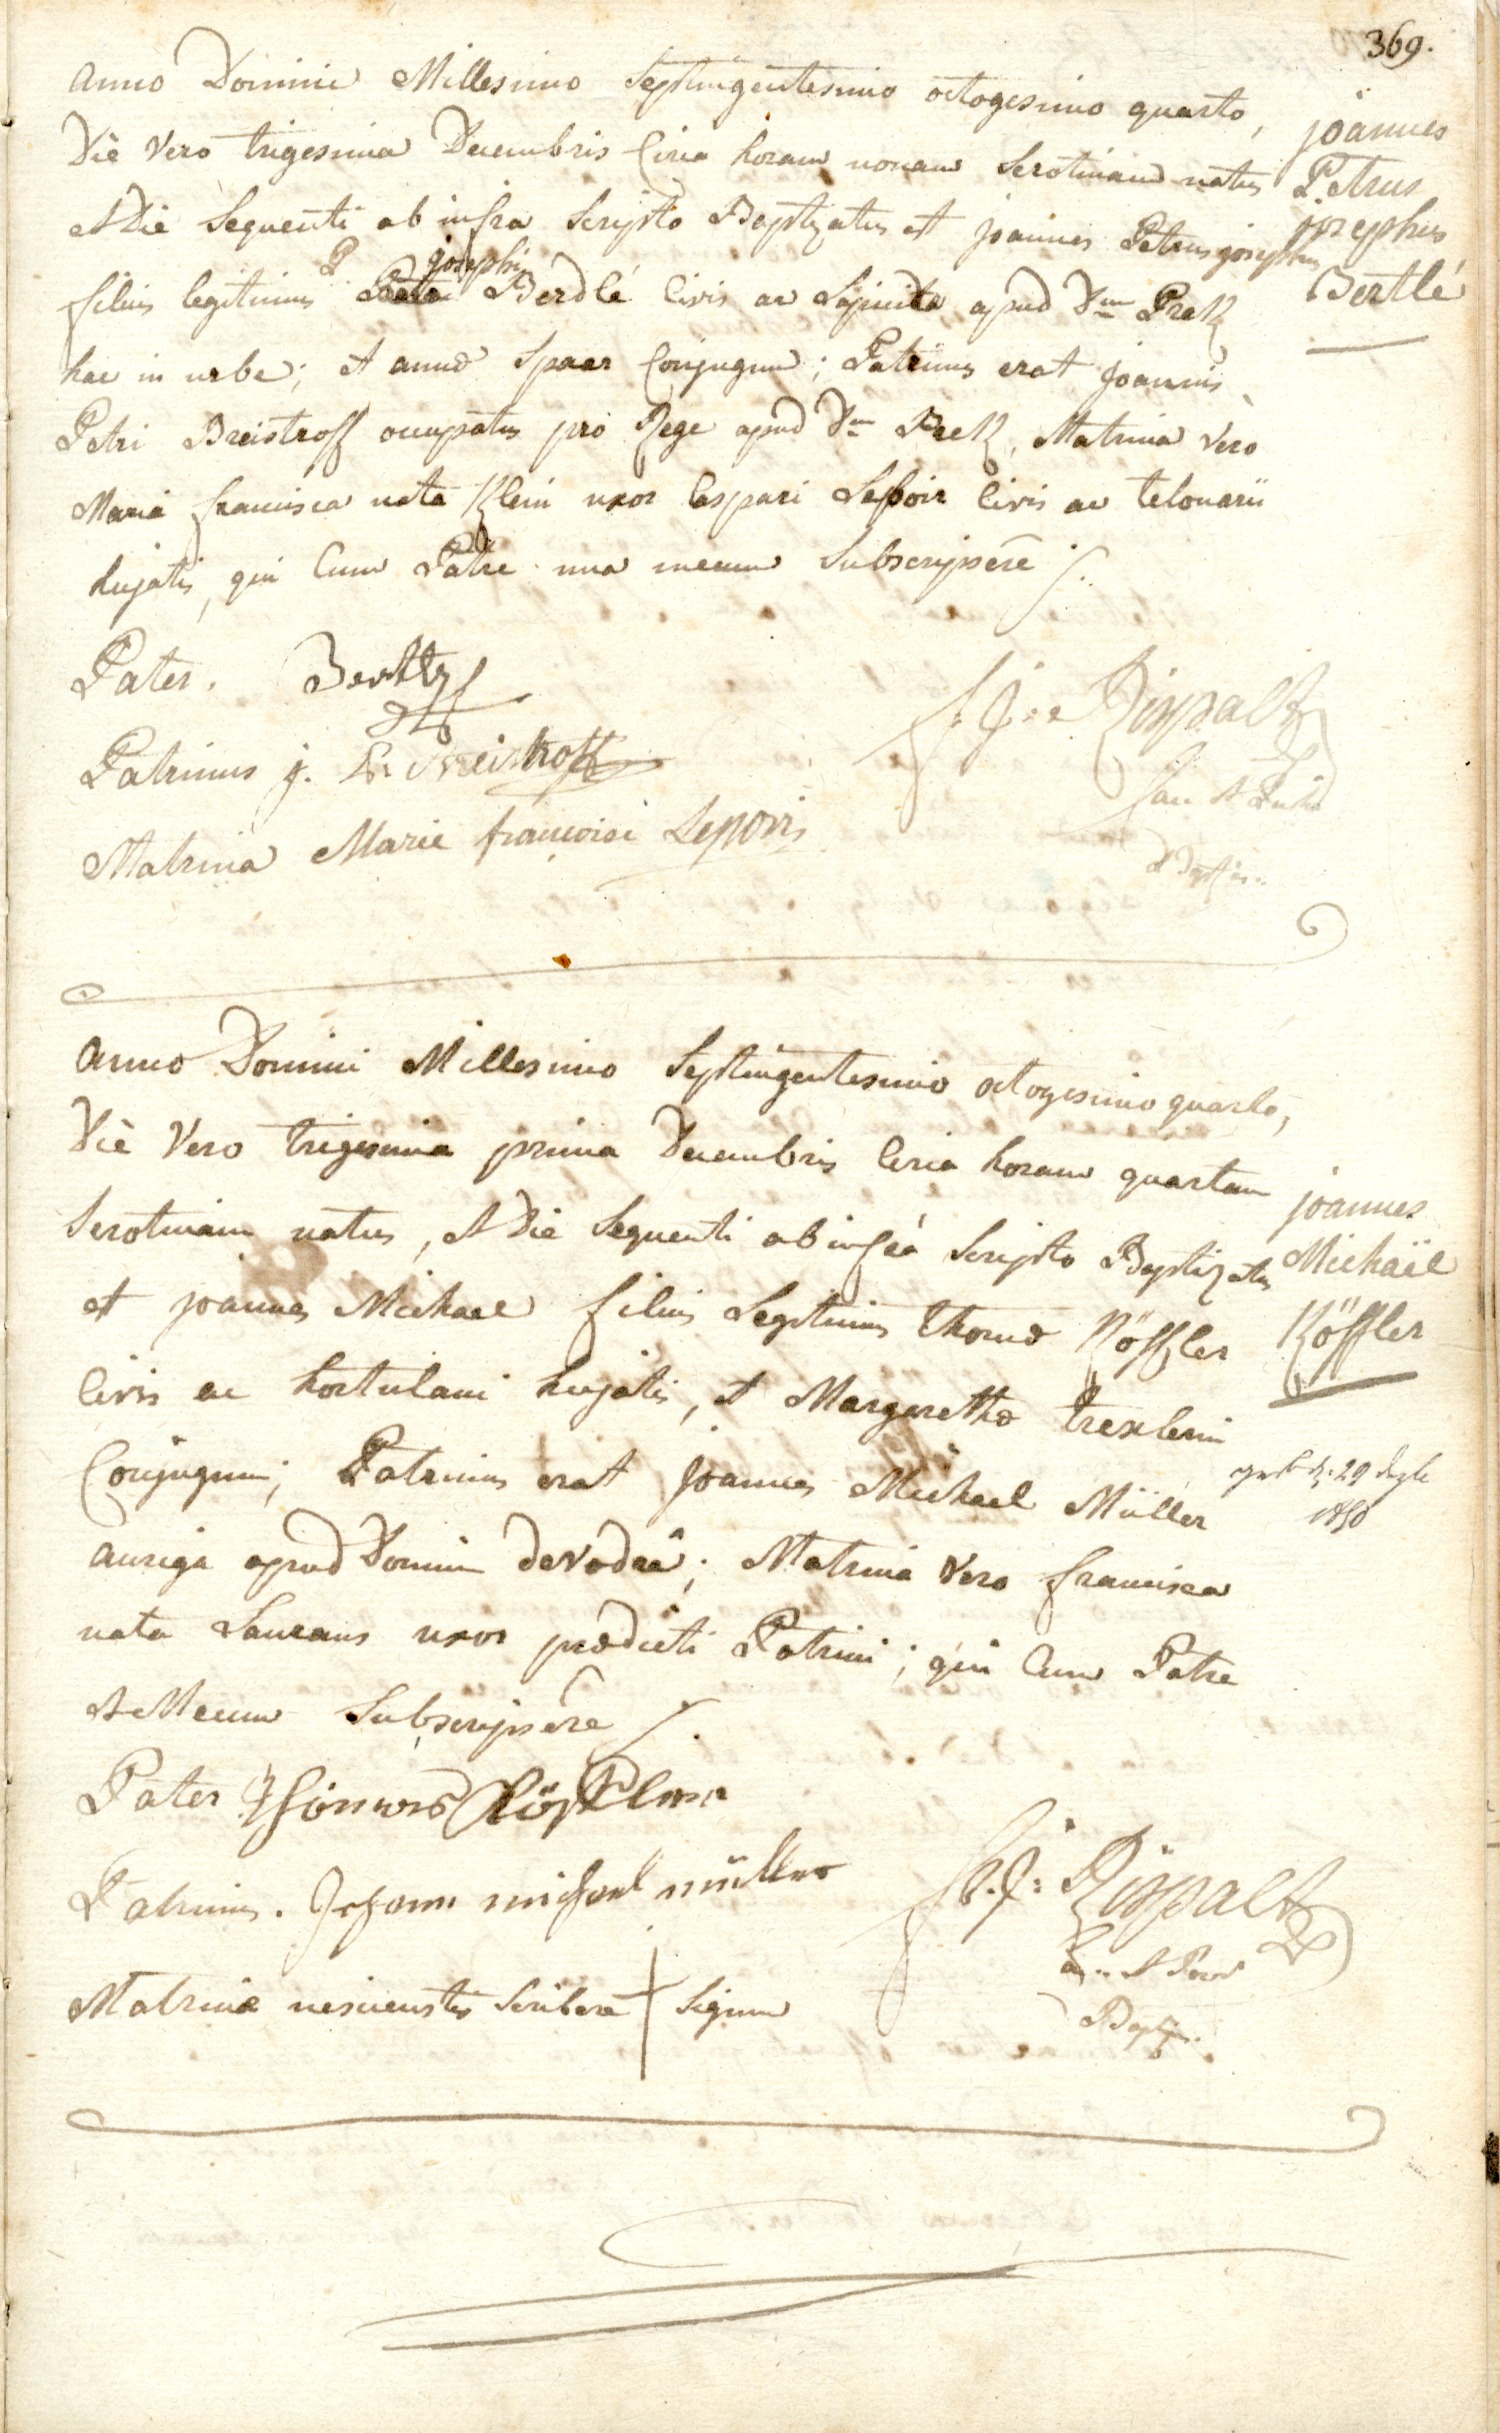 369.
Anno Domini Millesimo Septingentesimo octogesimo quarto,
Die vero trigesima Decembris Circa horam nonam Serotinam natus
et Die Sequenti ab infra Scripto Baptizatus est joannes Petrus josephus
filius legitimus josephi Berdlé Civis ac apud Dnm Prell
hac in urbe; et annæ Spaar Conjugum; Patrinus erat Joannis
Petri Breistroff occupatus pro Rege apud Dnm Prell, Matrina vero
Maria francisca nata Klein uxor Caspari Lepoir Civis ac telonarii
hujatis, qui Cum Patre una mecum Subscripsere
joannes
Petrus
josephus
Bertlé
Pater. Bertle
Patrinus j. P. Breistroff
Matrina Marie francoise Lepoirs
J: Rispalt
Anno Domini Millesimo Septingentesimo octogesimo quarto,
Die Vero trigesima prima Decembris Circa horam quartam
Serotinam natus, et Die Sequenti ab infra Scripto Baptizatus
et joannes Michael filius Legitimus Thomæ Köffler
Civis ac hortulani hujatis, et Margarethæ trexlerin
Conjugum; Patrinus erat joannes Michael Müller
auriga apud Domin devodrâ; Matrina vero francisca
nata Laurans uxor prædicti Patrini; qui Cum Patre
et Mecum Subscripsere
joannes
Michaël
Köffler
29
1850
Pater Thomas Köffler
Patrinus. Johann michael müller
Matrinæ nescientis Scribere + Signum
J: Rispalt
Bapt.